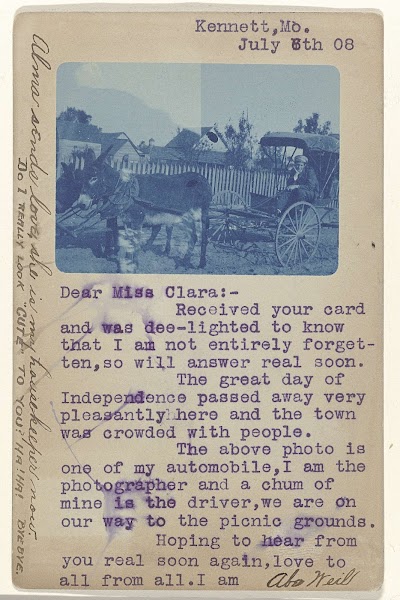 Kennett,Mo.
July 6th 08
Dear Miss Clara:-
Received your card
and was dee-lighted to know
that I am not entirely forget-
ten,so will answer real soon.
The great day of
Independence passed away very
pleasantly here and the town
was crowded with people.
The above photo is
one of my automobile,I am the
photographer and a chum of
mine is the driver,we are on
our way to the picnic grounds.
Hoping to hear from
you real soon again,love to
all from all.I am Abe Weil
Alma sends love, she is my housekeeper now
DO I REALLY LOOK "CUTE" TO YOU? HA! HA! BYE BYE.